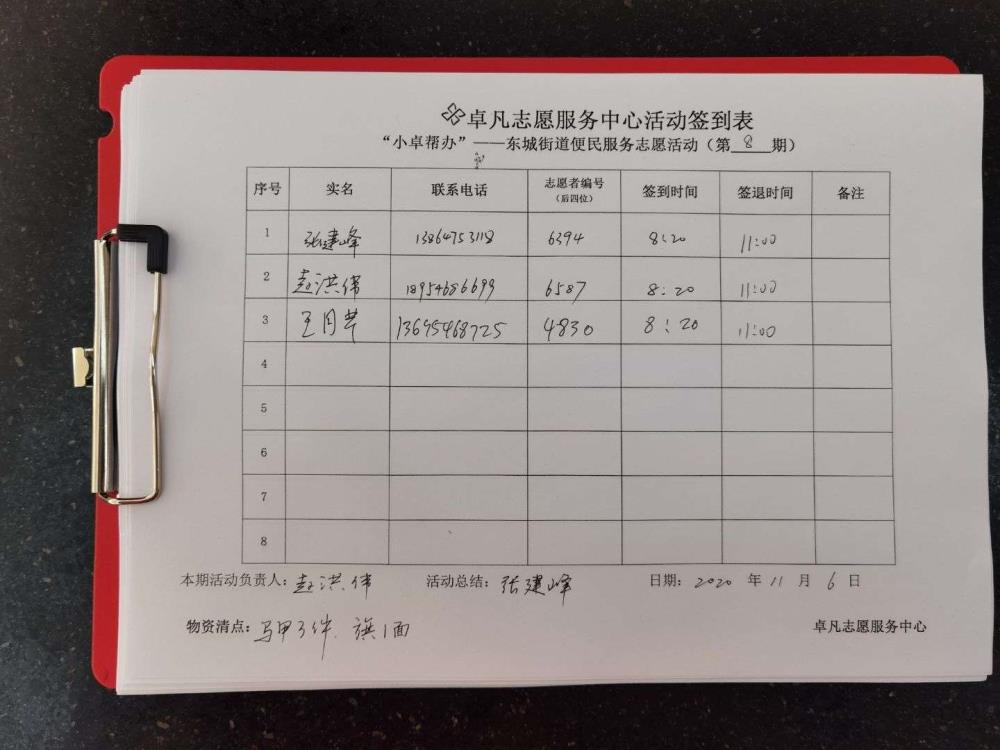 卓凡志愿服务中心活动签到表
“小卓帮办”——东城街道便民服务志愿活动（第 8 期）
序号 实名 联系电话 志愿者编号（后四位） 签到时间 签退时间 备注
1 张建峰 13864753118 6394 8:20 11:00
2 赵洪伟 18954686699 6587 8:20 11:00
3 王月芹 13695468725 4830 8:20 11:00
4
5
6
7
8
本期活动负责人：赵洪伟 活动总结：张建峰 日期：2020 年 11 月 6 日
物资清点：马甲3件、旗1面 卓凡志愿服务中心